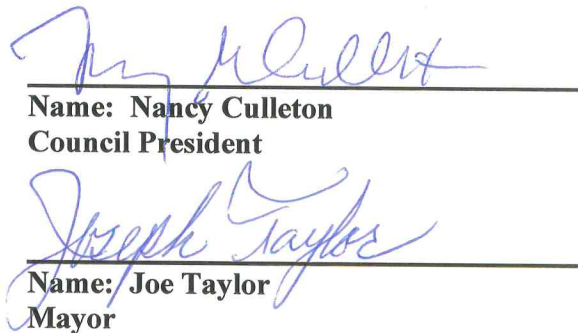 Nancy Culleton
Name: Nancy Culleton
Council President
Joseph Taylor
Name: Joe Taylor
Mayor